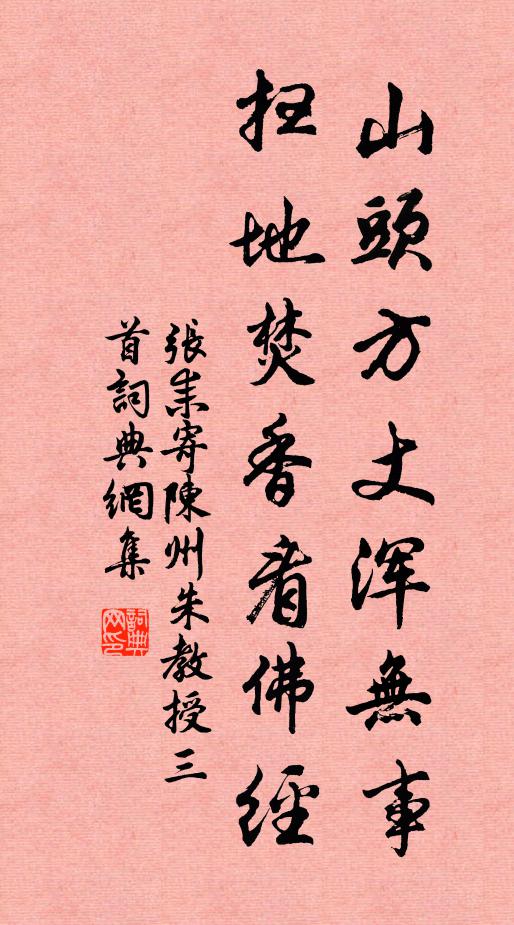 山頭方丈渾無事
扫地焚香看佛經
張耒寄陳州朱教授三
首詞典網集
詞典
网印